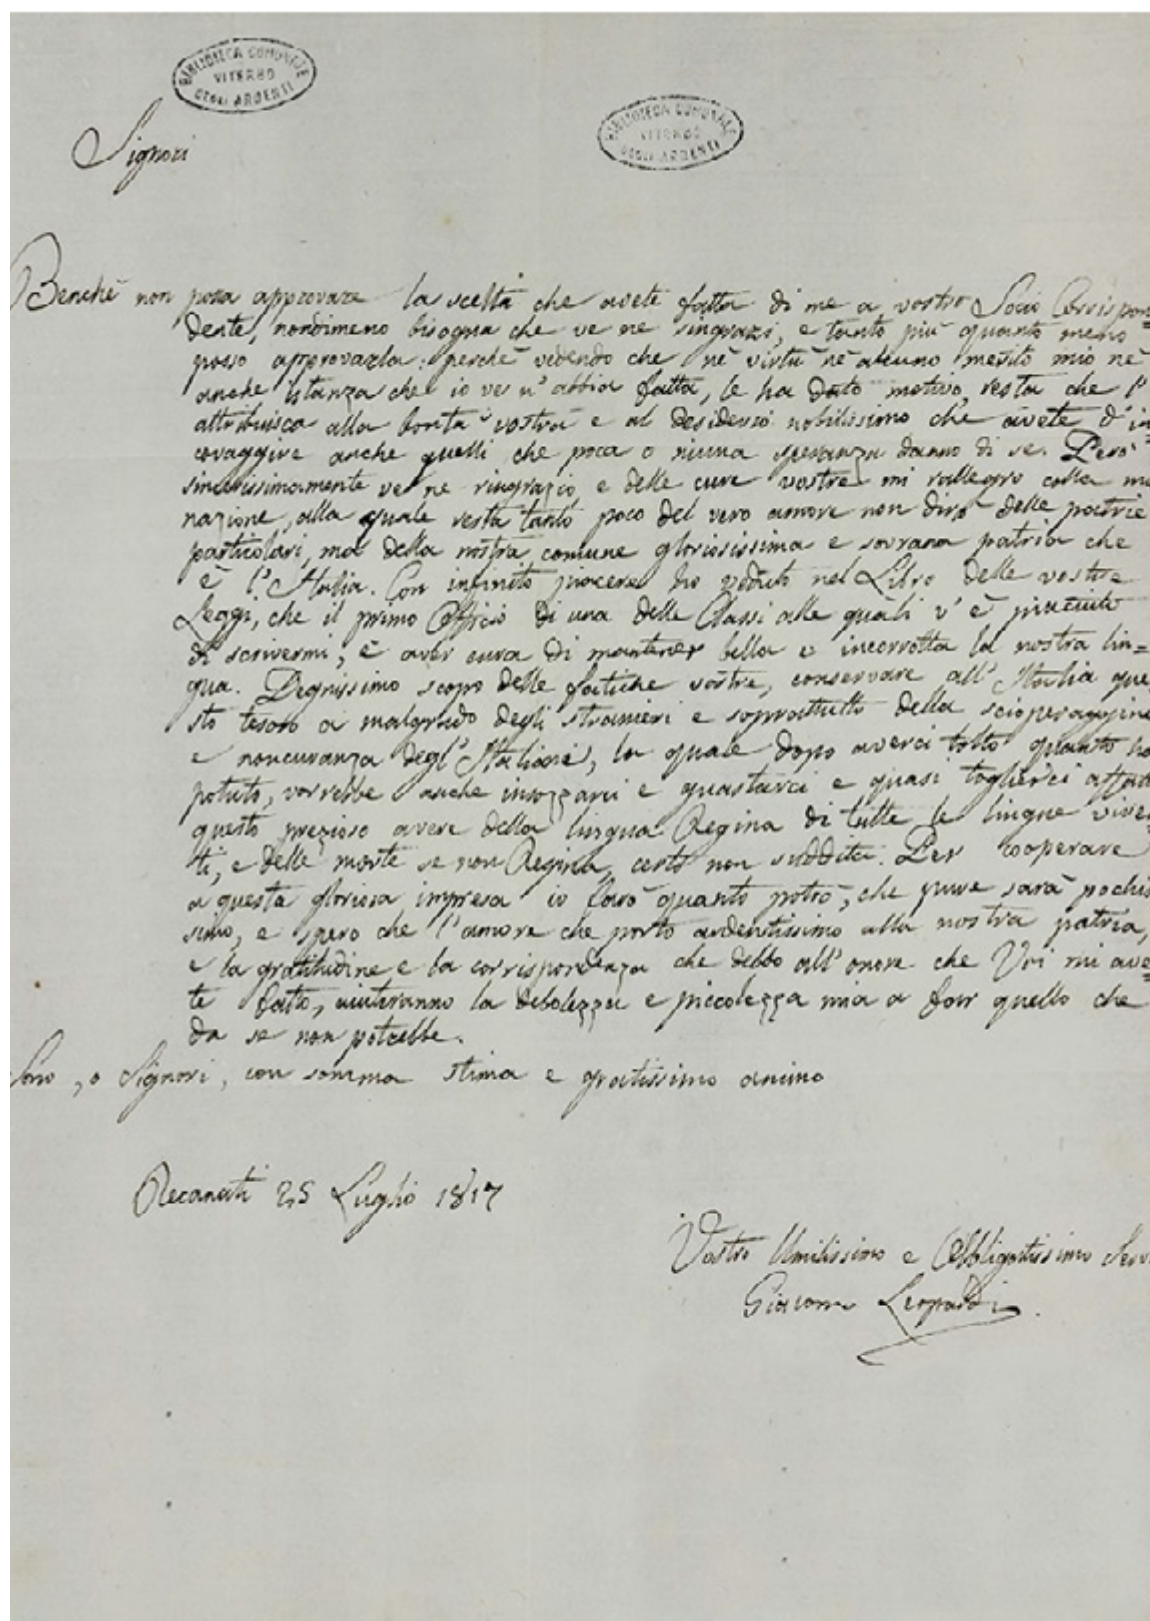 BIBLIOTECA COMUNALE
VITERBO
DEGLI ARDENTI
BIBLIOTECA COMUNALE
VITERBO
DEGLI ARDENTI
Signori
Benchè non possa approvare la scelta che avete fatta di me a vostro Socio Corrispon=
dente, nondimeno bisogna che ve ne ringrazi, e tanto più quanto meno
posso approvarla: perchè vedendo che nè virtù nè alcuno merito mio nè
anche istanza che io ve n'abbia fatta, le ha dato motivo, resta che l'
attribuisca alla bontà vostra e al desiderio nobilissimo che avete d'in=
coraggire anche quelli che poca o niuna speranza danno di se. Però
sincerissimamente ve ne ringrazio, e delle cure vostre mi rallegro colla mia
nazione, alla quale resta tanto poco del vero amore non dirò delle patrie
particolari, ma della nostra comune gloriosissima e sovrana patria che
è l'Italia. Con infinito piacere ho veduto nel Libro delle vostre
Leggi, che il primo Officio di una delle Classi alle quali v'è piaciuto
di scrivermi, è aver cura di mantener bella e incorrotta la nostra lin=
gua. Degnissimo scopo delle fatiche vostre, conservare all'Italia que
sto tesoro a malgrado degli stranieri e soprattutto della scioperaggine
e noncuranza degl'Italiani, la quale dopo averci tolto quanto ha
potuto, vorrebbe anche insozzarci e guastarci e quasi toglierci affatto
questo prezioso avere della lingua Regina di tutte le lingue viven
ti, e delle morte se non Regina, certo non suddita. Per cooperare
a questa gloriosa impresa io farò quanto potrò, che pure sarà pochis
simo, e spero che l'amore che porto ardentissimo alla nostra patria,
e la gratitudine e la corrispondenza che debbo all'onore che Voi mi ave=
te fatto, aiuteranno la debolezza e piccolezza mia a far quello che
da se non potrebbe.
Sono, o Signori, con somma stima e gratissimo animo
Recanati 25 Luglio 1817
Vostro Umilissimo e Obbligatissimo Serv
Giacomo Leopardi.